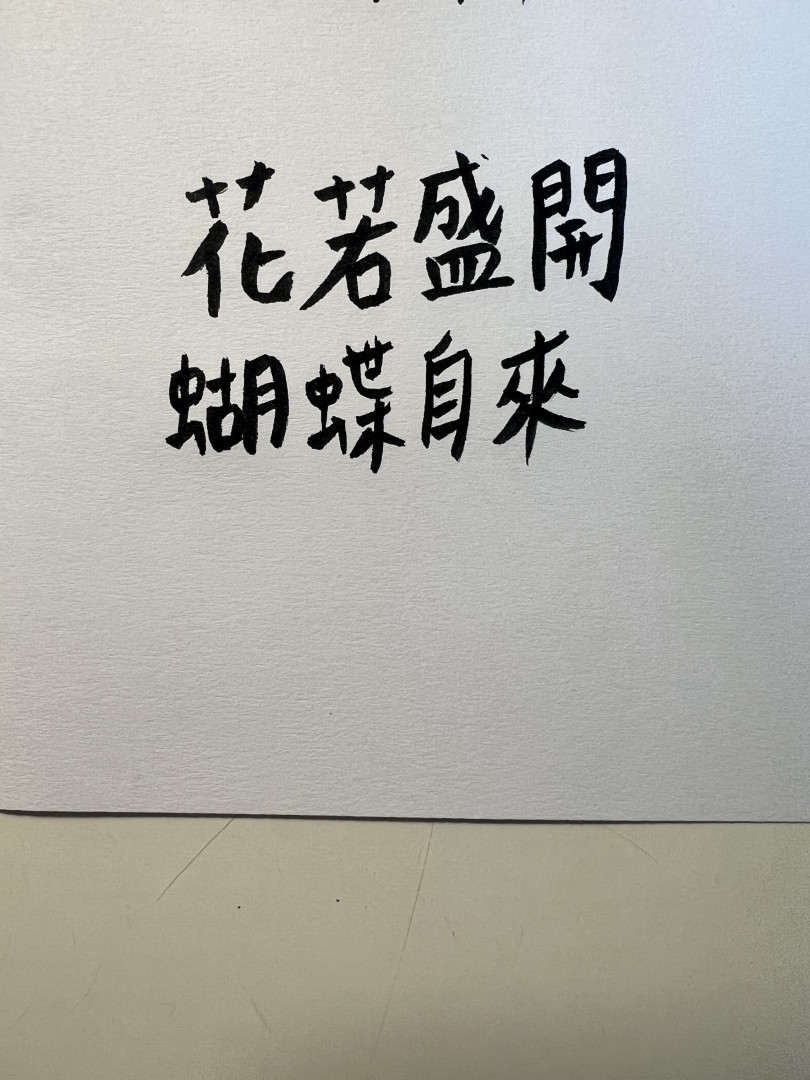 花若盛開
蝴蝶自來